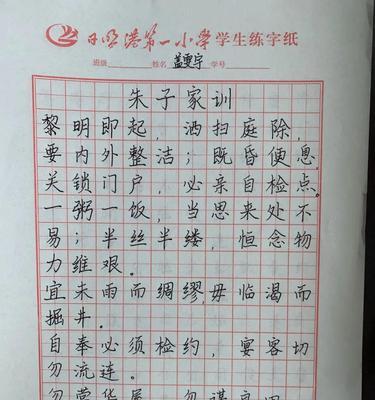 日照港第一小学学生练字纸
班级 姓名 盖雯宇 学号
朱子家训
黎明即起,洒扫庭除,
要内外整洁;既昏便息,
关锁门户,必亲自检点。
一粥一饭,当思来处不
易;半丝半缕,恒念物
力维艰。
宜未雨而绸缪,毋临渴而
掘井。
自奉必须检约,宴客切
勿流连。